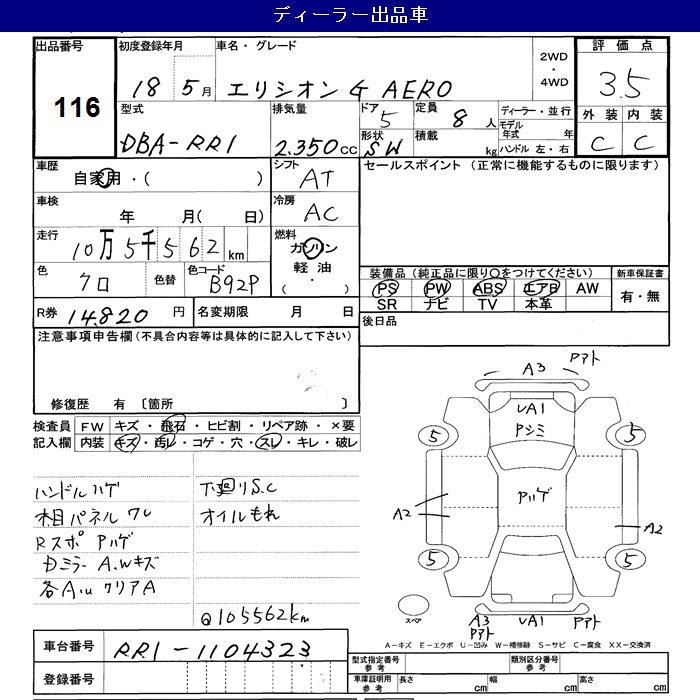 ディーラー出品車
出品番号 初度登録年月 車名・グレード 2WD・4WD 評価点
116 18 5月 エリシオン G AERO 3.5
型式 排気量 ドア 5 定員 8人 ディーラー・並行 外装 内装
DBA-RR1 2.350cc 形状 SW 積載 kg モデル年式 年 ハンドル 左・右 C C
車歴 シフト セールスポイント (正常に機能するものに限ります)
自家用・( ) AT
車検 冷房
年 月( 日) AC
走行 燃料
10万5千562km ガソリン
軽油
・( )
色 色替 色コード 装備品(純正品に限り〇をつけてください) 新車保証書
クロ B92P PS PW ABS エアB AW 有・無
SR ナビ TV 本革
R券 14.820円 名変期限 月 日 後日品
注意事項申告欄(不具合内容等は具体的に記入して下さい)
修復歴 有 〔箇所 〕
検査員 FW キズ・飛石・ヒビ割・リペア跡・×要
記入欄 内装 キズ・汚レ・コゲ・穴・スレ・キレ・破レ
ハンドルハゲ 下廻りS.C
木目パネルワレ オイルもれ
Rスポ Pハゲ
ミラー A.Wキズ
各Aル クリアA
@105562km
A3 Pアト
VA1
Pシミ
5 5
Pハゲ
A2 A2
5 5
スペア
A3 Pアト VA1 Pアト
A-キズ E-エクボ U-凹み W-補修跡 S-サビ C-腐食 XX-交換済
車台番号 RR1-1104323
型式指定番号 参考 類別区分番号 参考
登録番号 車庫証明用 参考 長さ cm 幅 cm 高さ cm